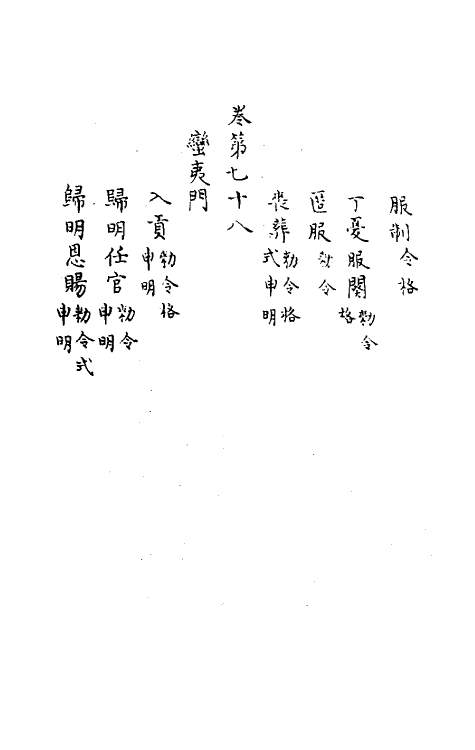 服制令格
丁憂服闋勑令格
匿服勑令
喪葬勑令格式申明
卷第七十八
蠻夷門
入貢勑令格申明
歸明任官勑令申明
歸明恩賜勑令式申明